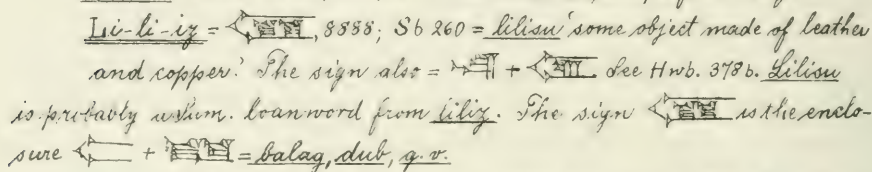 Li-li-iz = , 8888; Sb 260 = lilisu 'some object made of leather
and copper.' The sign also = + See Hwb. 378b. Lilisu
is probably a Sum. loanword from liliz. The sign is the enclo-
sure + = balag, dub, q. v.